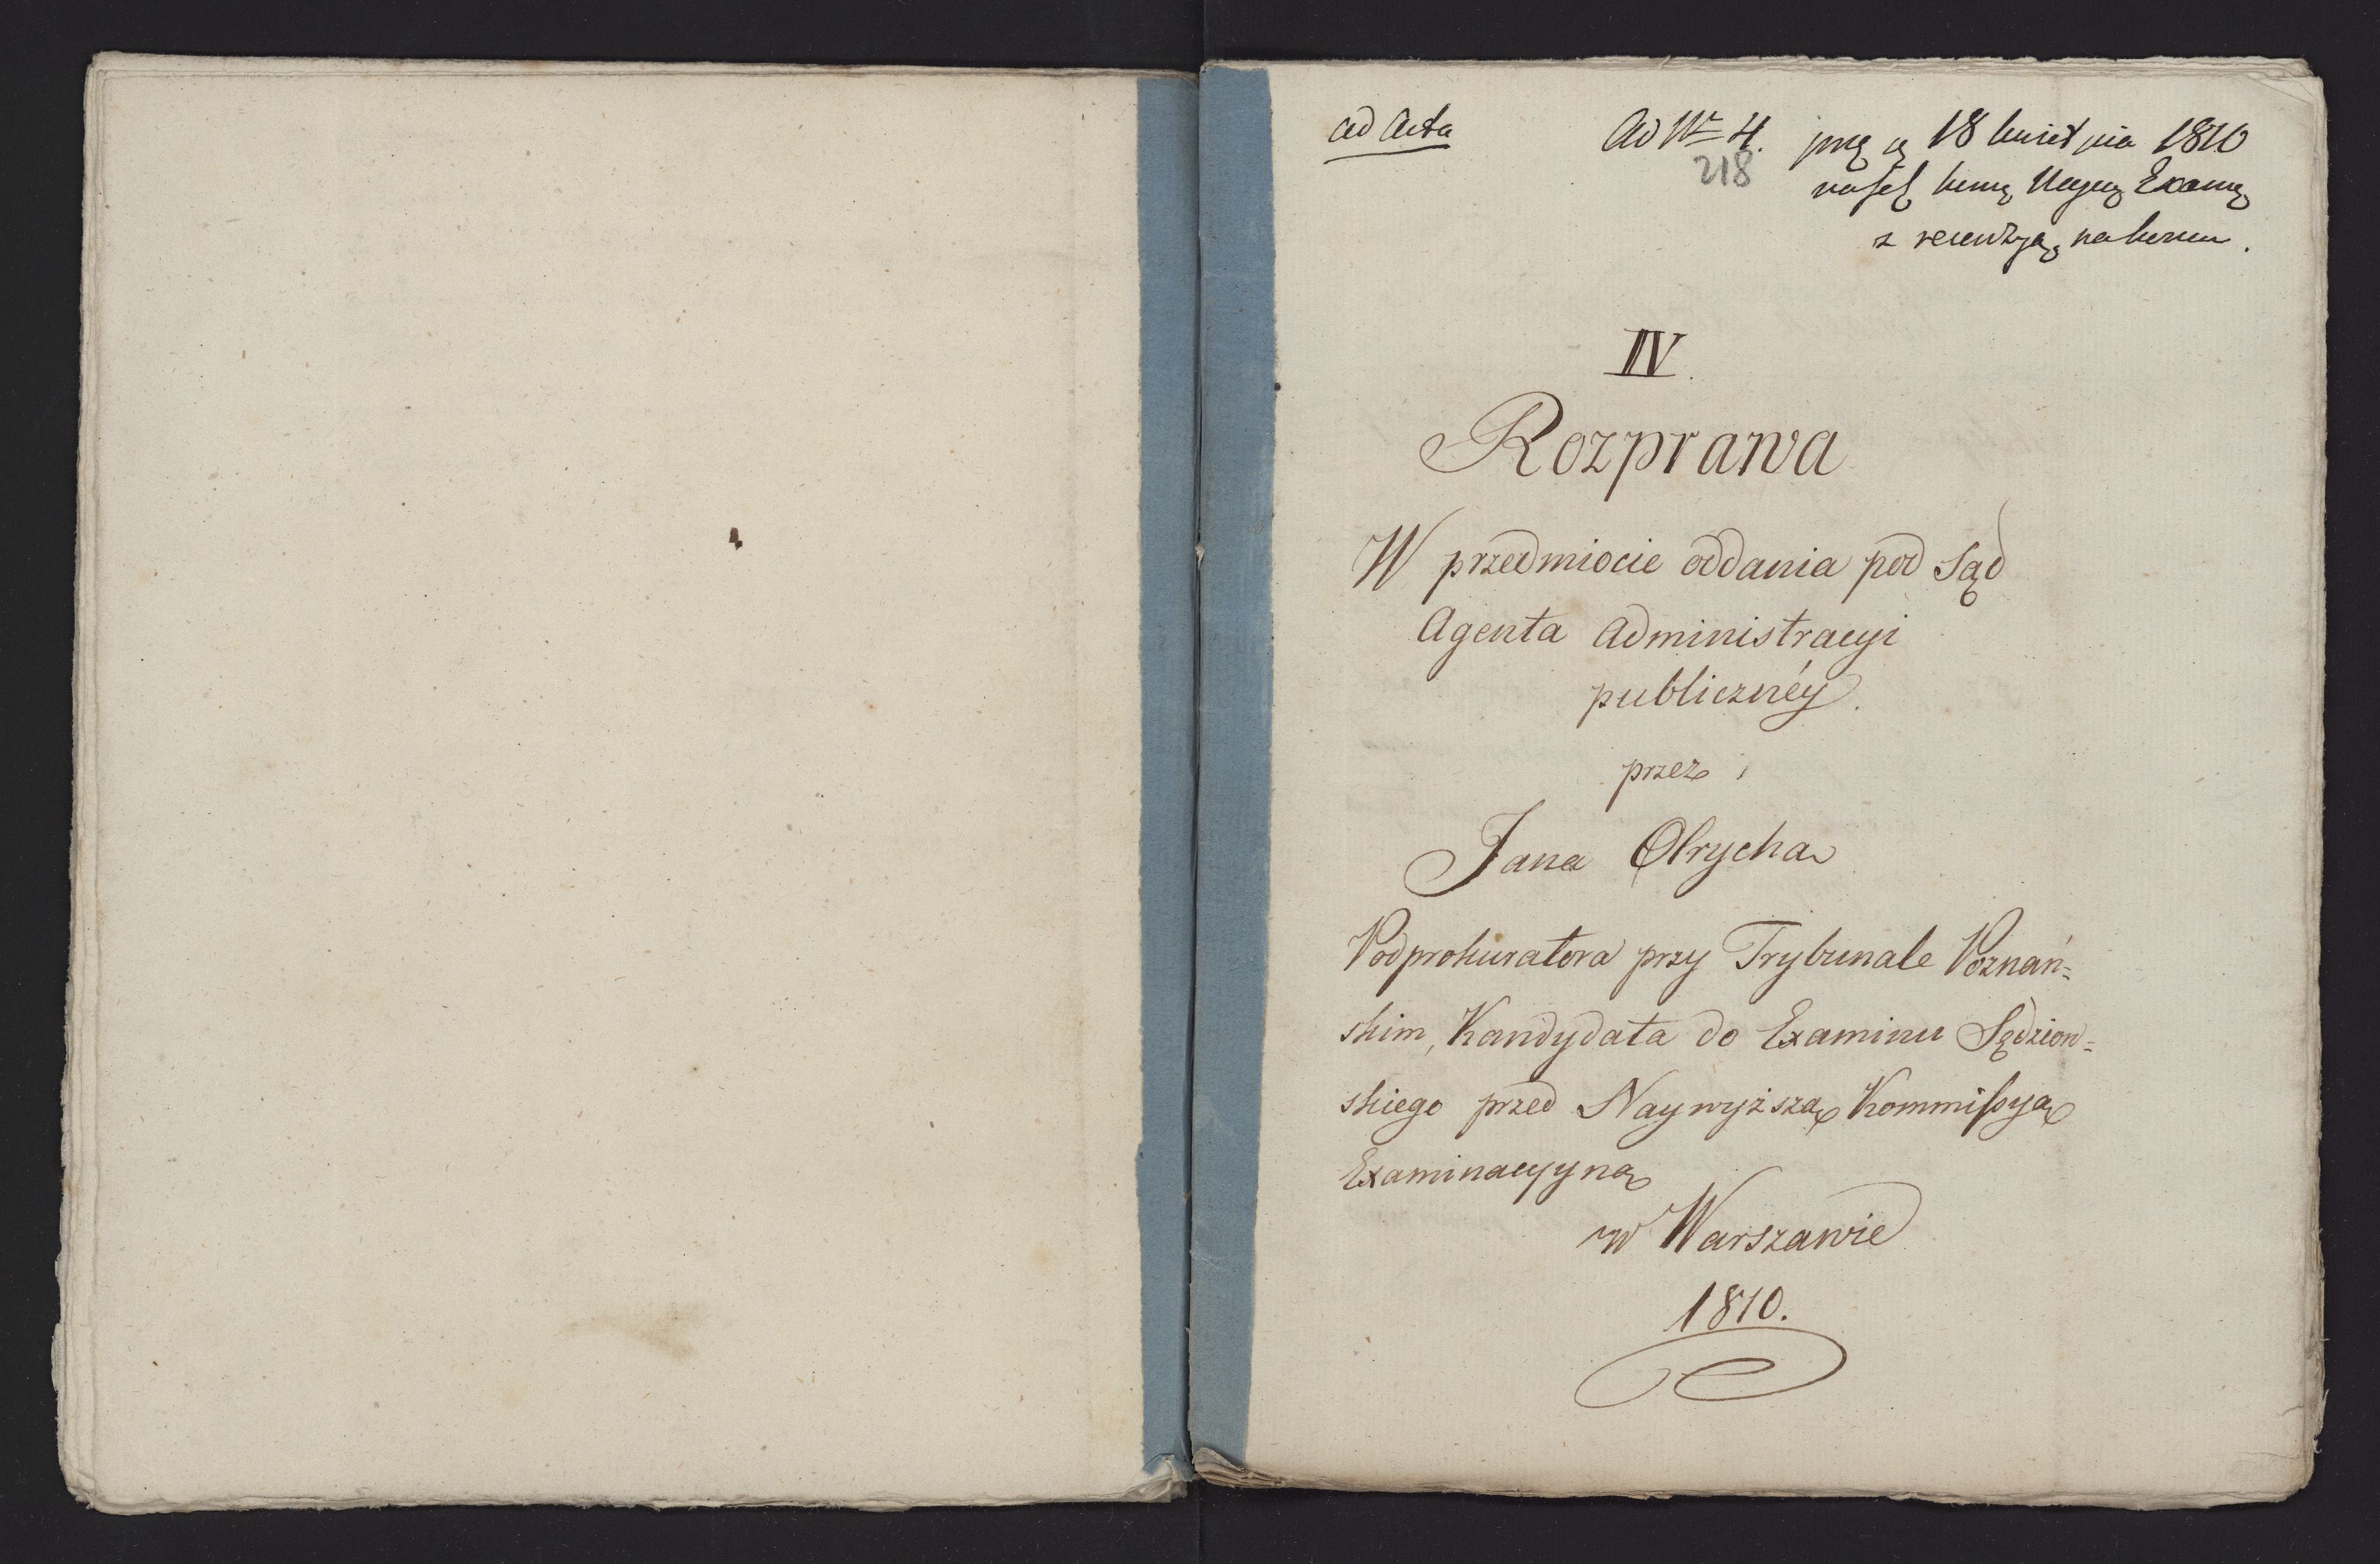 ad acta
Ad Nr 4. 18 kwietnia 1810
218
z recenzyą na koncu.
IV.
Rozprawa
W przedmiocie oddania pod Sąd
Agenta Administracyi
publicznéy.
przez
Jana Olrycha
Podprokuratora przy Trybunale Poznań=
skim, Kandydata do Examinu Sędziow=
skiego przed Naywyższą Kommissyą
Examinacyyną
w Warszawie
1810.